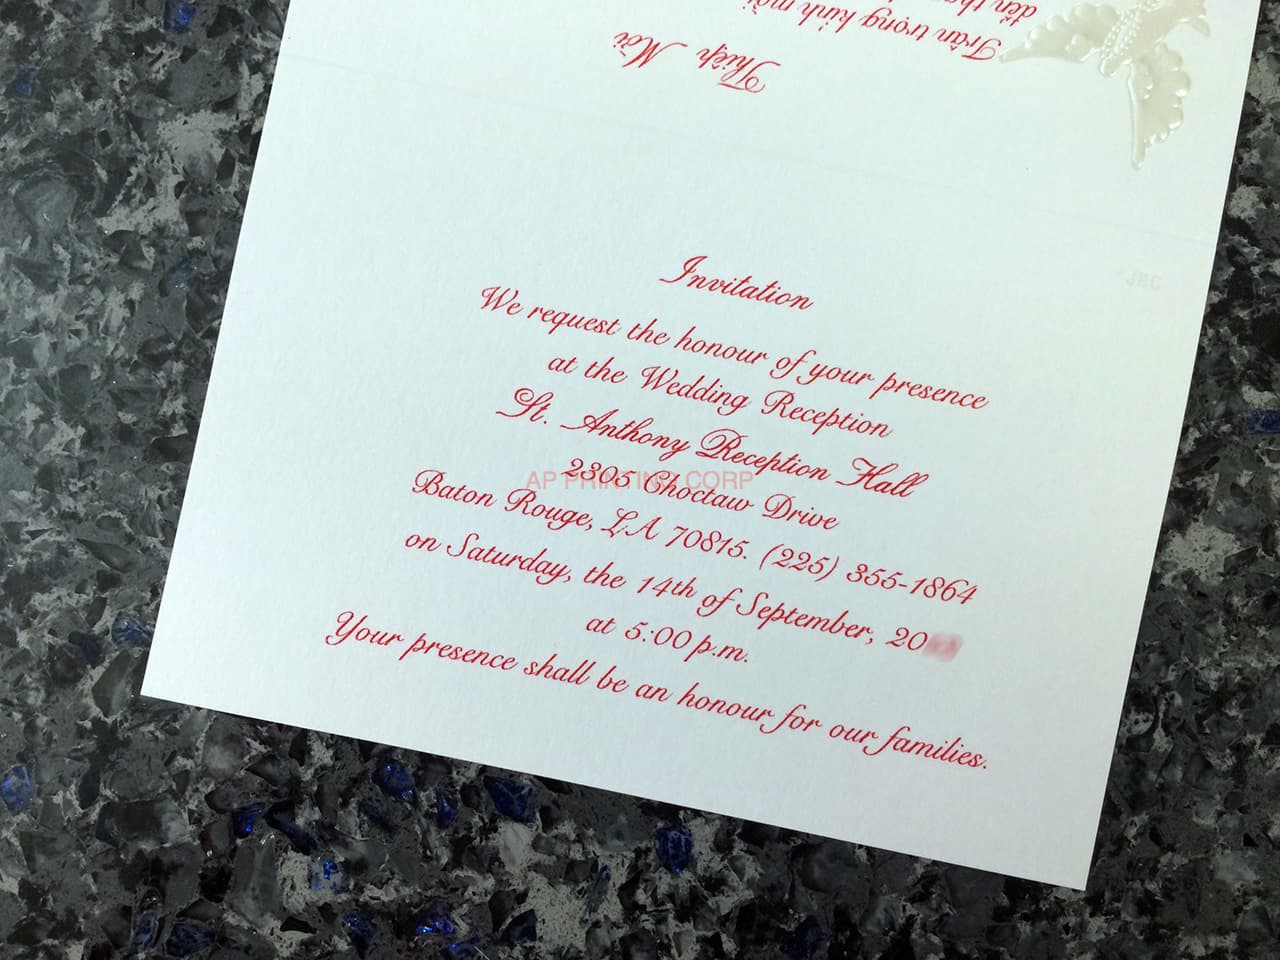 Thiệp Mời
Trân trọng kính mời
đến
Invitation
We request the honour of your presence
at the Wedding Reception
St. Anthony Reception Hall
2305 Choctaw Drive
Baton Rouge, LA 70815. (225) 355-1864
on Saturday, the 14th of September, 20
at 5:00 p.m.
Your presence shall be an honour for our families.
AP PRINTING CORP